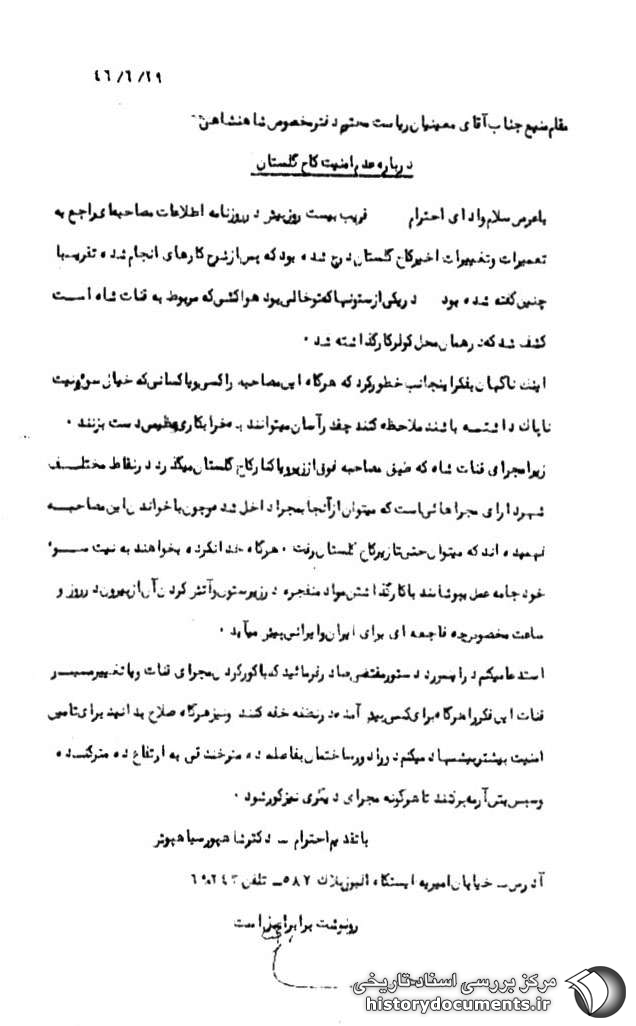 ۴۶/۶/۲۹
مقام منیع جناب آقای معینیان ریاست محترم دفتر مخصوص شاهنشاهی
درباره عدم امنیت کاخ گلستان
با عرض سلام و ادای احترام قریب بیست روز پیش در روزنامه اطلاعات مصاحبه‌ای راجع به
تعمیرات و تغییرات اخیر کاخ گلستان درج شده بود که پس از شرح کارهای انجام شده تقریبا
چنین گفته شده بود در یکی از ستونها که تو خالی بود هواکشی که مربوط به قنات شاه است
کشف شد که در همان محل کولر کار گذاشته شد .
اینک ناگهان بفکر اینجانب خطور کرد که هرگاه این مصاحبه را کسی و یا کسانی که خیال سوء‌نیت
ناپاک داشته باشند ملاحظه کنند چقدر آسان میتوانند به خرابکاری عظیمی دست بزنند .
زیرا مجرای قنات شاه که طبق مصاحبه فوق از زیر و یا کنار کاخ گلستان میگذرد در نقاط مختلف
شهر دارای مجراهائی است که میتوان از آنجا بمجرا داخل شد و چون با خواندن این مصاحبه
فهمیده اند که میتوان حتی تا زیر کاخ گلستان رفت . هرگاه خدا نکرده بخواهند به نیت سوء
خود جامه عمل بپوشانند با کار گذاشتن مواد منفجره در زیر ستون و آتش کردن آن از بیرون در روز و
ساعت مخصوص چه فاجعه ای برای ایران و ایرانی پیش میآید .
استدعا میکنم در اینمورد دستور مقتضی صادر فرمائید که با کور کردن مجرای قنات و یا تغییر مسیر
قنات این فکر را هرگاه برای کسی پیش آمده در نطفه خفه کنند و نیز هرگاه صلاح بدانید برای تامین
امنیت بیشتر پیشنهاد میکنم دورادور ساختمان بفاصله ده متر خندقی به ارتفاع ده متر کنده
و سپس بتن آرمه بزنند تا هرگونه مجرای دیگری نیز کور شود .
با تقدیم احترام – دکتر شاهپور سیاهپوش
آدرس – خیابان امیریه ایستگاه البرز پلاک ۵۸۷ – تلفن
رونوشت برابر اصل است
مرکز بررسی اسناد تاریخی
historydocuments.ir